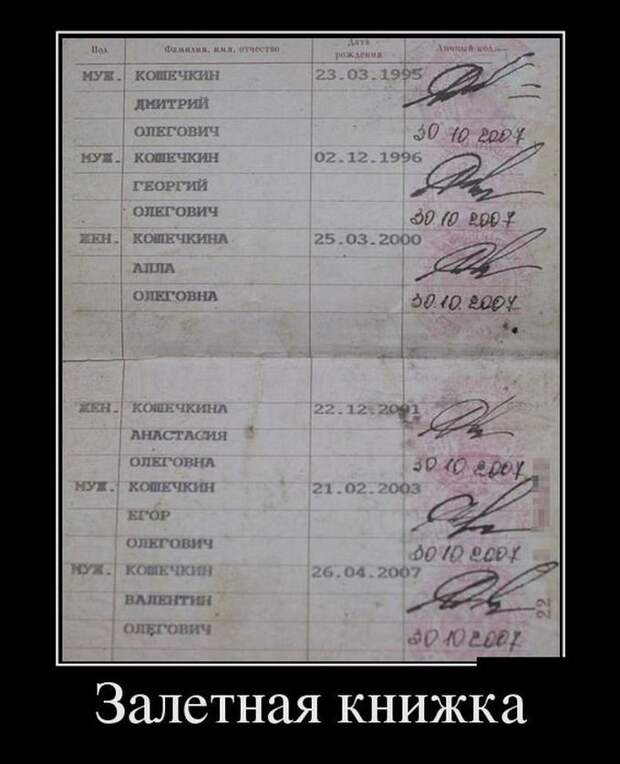 Пол Фамилия, имя, отчество Дата рождения Личный код
МУЖ. КОШЕЧКИН 23.03.1995
ДМИТРИЙ
ОЛЕГОВИЧ 30 10 2007
МУЖ. КОШЕЧКИН 02.12.1996
ГЕОРГИЙ
ОЛЕГОВИЧ 30.10 2007
ЖЕН. КОШЕЧКИНА 25.03.2000
АЛЛА
ОЛЕГОВНА 30.10.2007
ЖЕН. КОШЕЧКИНА 22.12.2001
АНАСТАСИЯ
ОЛЕГОВНА 30 10 2007
МУЖ. КОШЕЧКИН 21.02.2003
ЕГОР
ОЛЕГОВИЧ 30 10 2007
МУЖ. КОШЕЧКИН 26.04.2007
ВАЛЕНТИН
ОЛЕГОВИЧ 30 10 2007
22
Залетная книжка